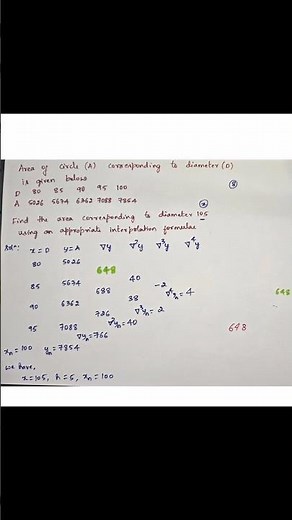 Area of circle (A) corresponding to diameter (D)
is given below
D 80 85 90 95 100
A 5026 5674 6362 7088 7854
Find the area corresponding to diameter 105
using an appropriate interpolation formulae
Solⁿ: x=D y=A ∇y ∇²y ∇³y ∇⁴y
80 5026
648
85 5674 40
688 -2
90 6362 38 ∇⁴yₙ = 4
726 ∇³yₙ = 2
95 7088 ∇²yₙ = 40
∇yₙ = 766
xₙ=100 yₙ=7854
we have,
x=105, h=5, xₙ=100
648
648